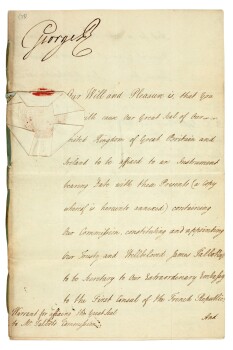 George R
Our Will and Pleasure is, that you
with our Great Seal of Our
United Kingdom of Great Britain and
Ireland to be affixed to an Instrument
bearing Date with these Presents (a Copy
whereof is hereunto annexed) containing
Our Commission, constituting and appointing
Our Trusty and Wellbeloved James Talbot
to be Secretary to our Extraordinary Embassy
to the First Consul of the French Republic.
And
Warrant for affixing the Great Seal
to Mr. Talbot's Commission.